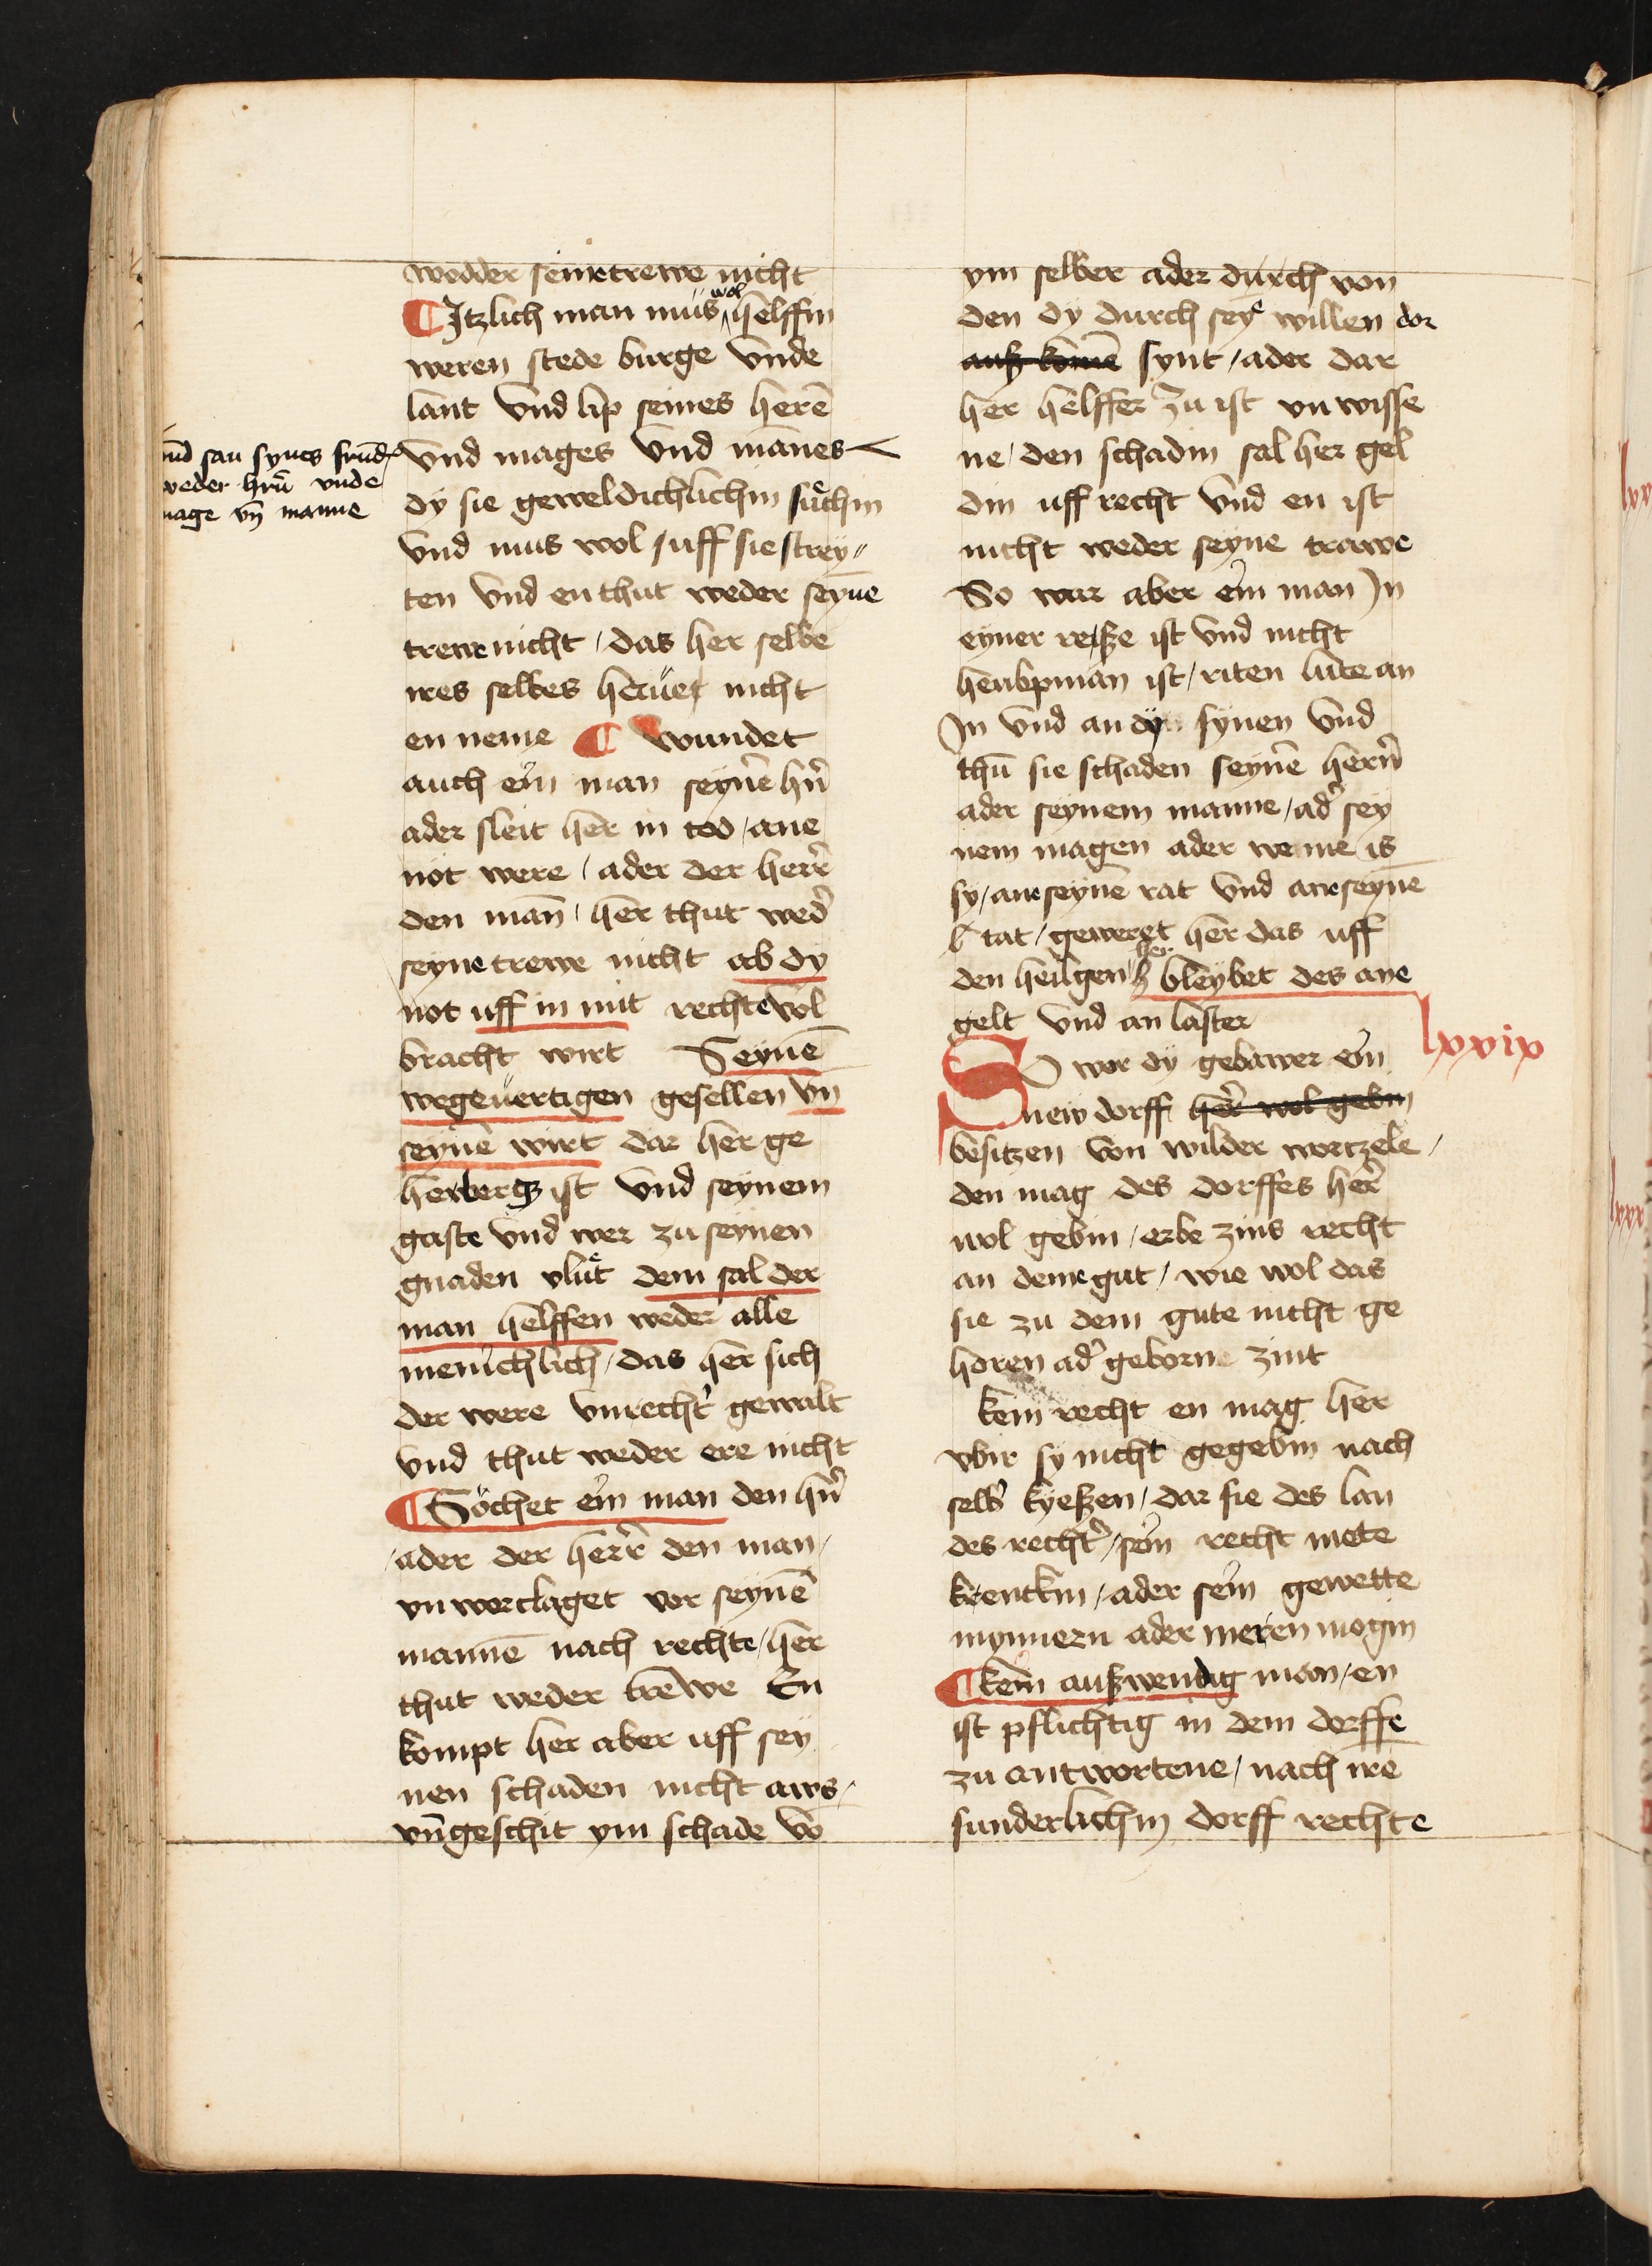 wedder seine trewe nicht
¶ Jtzlich man müs wol helffin
weren stede burge vnde
lant vnd lip seines herē
vnd mages vnd mānes
dy sie geweldichlichin suͤchin
vnd mus wol uff sie strey〃
ten vnd en thut weder seyne
trewe nicht / das her selbe
ires selbes nicht
en neme ¶ wundet
auch ein man seynē hrn̄
ader sleit her in tod / ane
not were / ader der herr̄
den man / her thut wed̓
seyne trewe nicht ab dy
not uff in mit rechte vol
bracht wirt Seynē
wegeuertigen gesellen vn̄
seynē wirt dar her ge
herberget ist vnd seynem
gaste vnd wer zu seynen
gnaden vluͤt dem sal der
man helffen weder alle
menichlich / das her sich
der were vnrecht̓ gewalt
vnd thut weder ere nicht
¶ Söchet ein man den hrn̄
/ ader der herr̄ den man /
vnworclaget vor seynē
mannē nach rechte / her
thut weder trewe En
kompt her aber uff sey
nen schaden nicht aws /
vn̄ geschit ym schade vō
vnd synes frūd
weder hrn̄ vnde
mage vn̄ manne
ym selber ader durch von
den dy durch sey̓ willen dor
auß komē synt / ader dar
her helffer zu ist vnwisse
ne / den schadin sal her gel
din uff recht vnd en ist
nicht weder seyne trawe
So war aber ein man Jn
eyner reiße ist vnd nicht
heubpman ist / riten lute an
Jn vnd an dy synen vnd
thū sie schaden seynē hern̄
ader seynem manne / ad̓ sey
nem magen ader weme is
sy / ane seynē rat vnd ane seyne
tat / geweret her das uff
den heiligen her bleybet des ane
gelt vnd an laster
lxxix
So wor dy gebawer ein
new dorff her̄ wol gebin
besitzen von wilder wortzele /
den mag des dorffes her̄
wol gebin / erbe zins recht
an deme gut / wie wol das
sie zu dem gute nicht ge
horen ad̓ geborne zint
kein recht en mag her
vbir sy nicht gegebin nach
selb̓ kyeßen / dar sie des lan
des recht̓ / sein recht mete
krenckin / ader sein gewette
mynnern ader meren mogin
¶ kein außwendig man / en
ist pflichtig in dem dorffe
zu antwortene / nach ire
sunderlichin dorff rechte